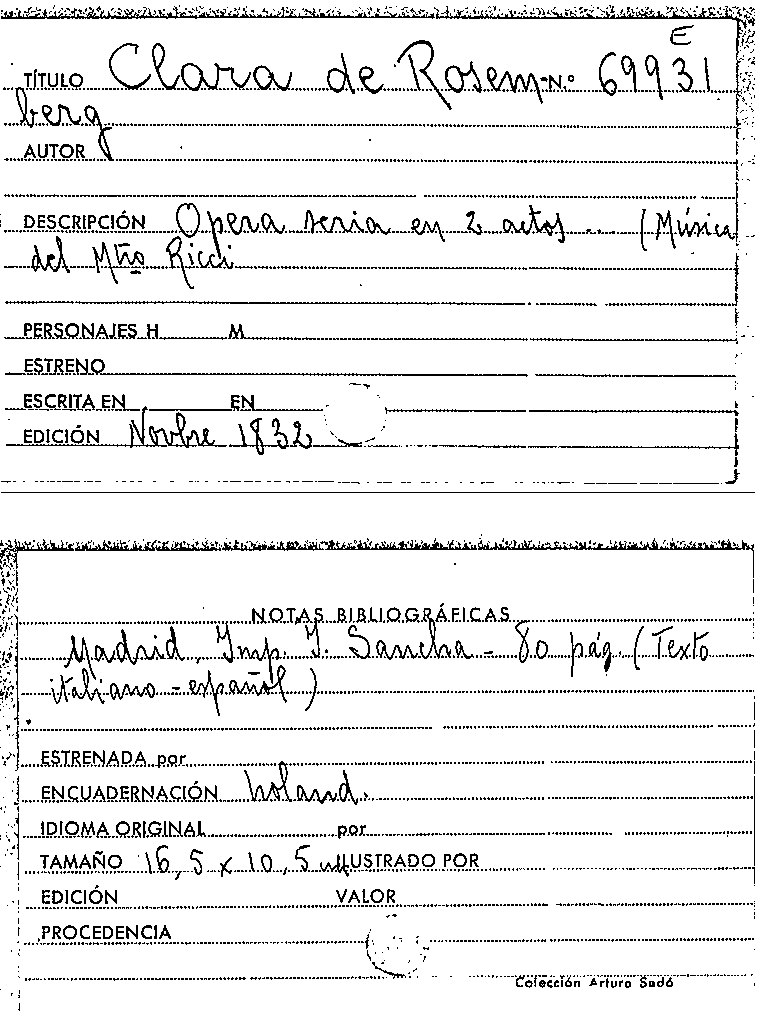 E
TÍTULO Clara de Rosem- N.º 69931
berg
AUTOR
DESCRIPCIÓN Opera seria en 2 actos ... (Música
del Mtro Ricci
PERSONAJES H M
ESTRENO
ESCRITA EN EN
EDICIÓN Novbre 1832
NOTAS BIBLIOGRÁFICAS
Madrid, Imp. I. Sancha - 80 pág. (Texto
italiano - español)
ESTRENADA por
ENCUADERNACIÓN holand.
IDIOMA ORIGINAL por
TAMAÑO 16,5 x 10,5 ILUSTRADO POR
EDICIÓN VALOR
PROCEDENCIA
Colección Arturo Sedó